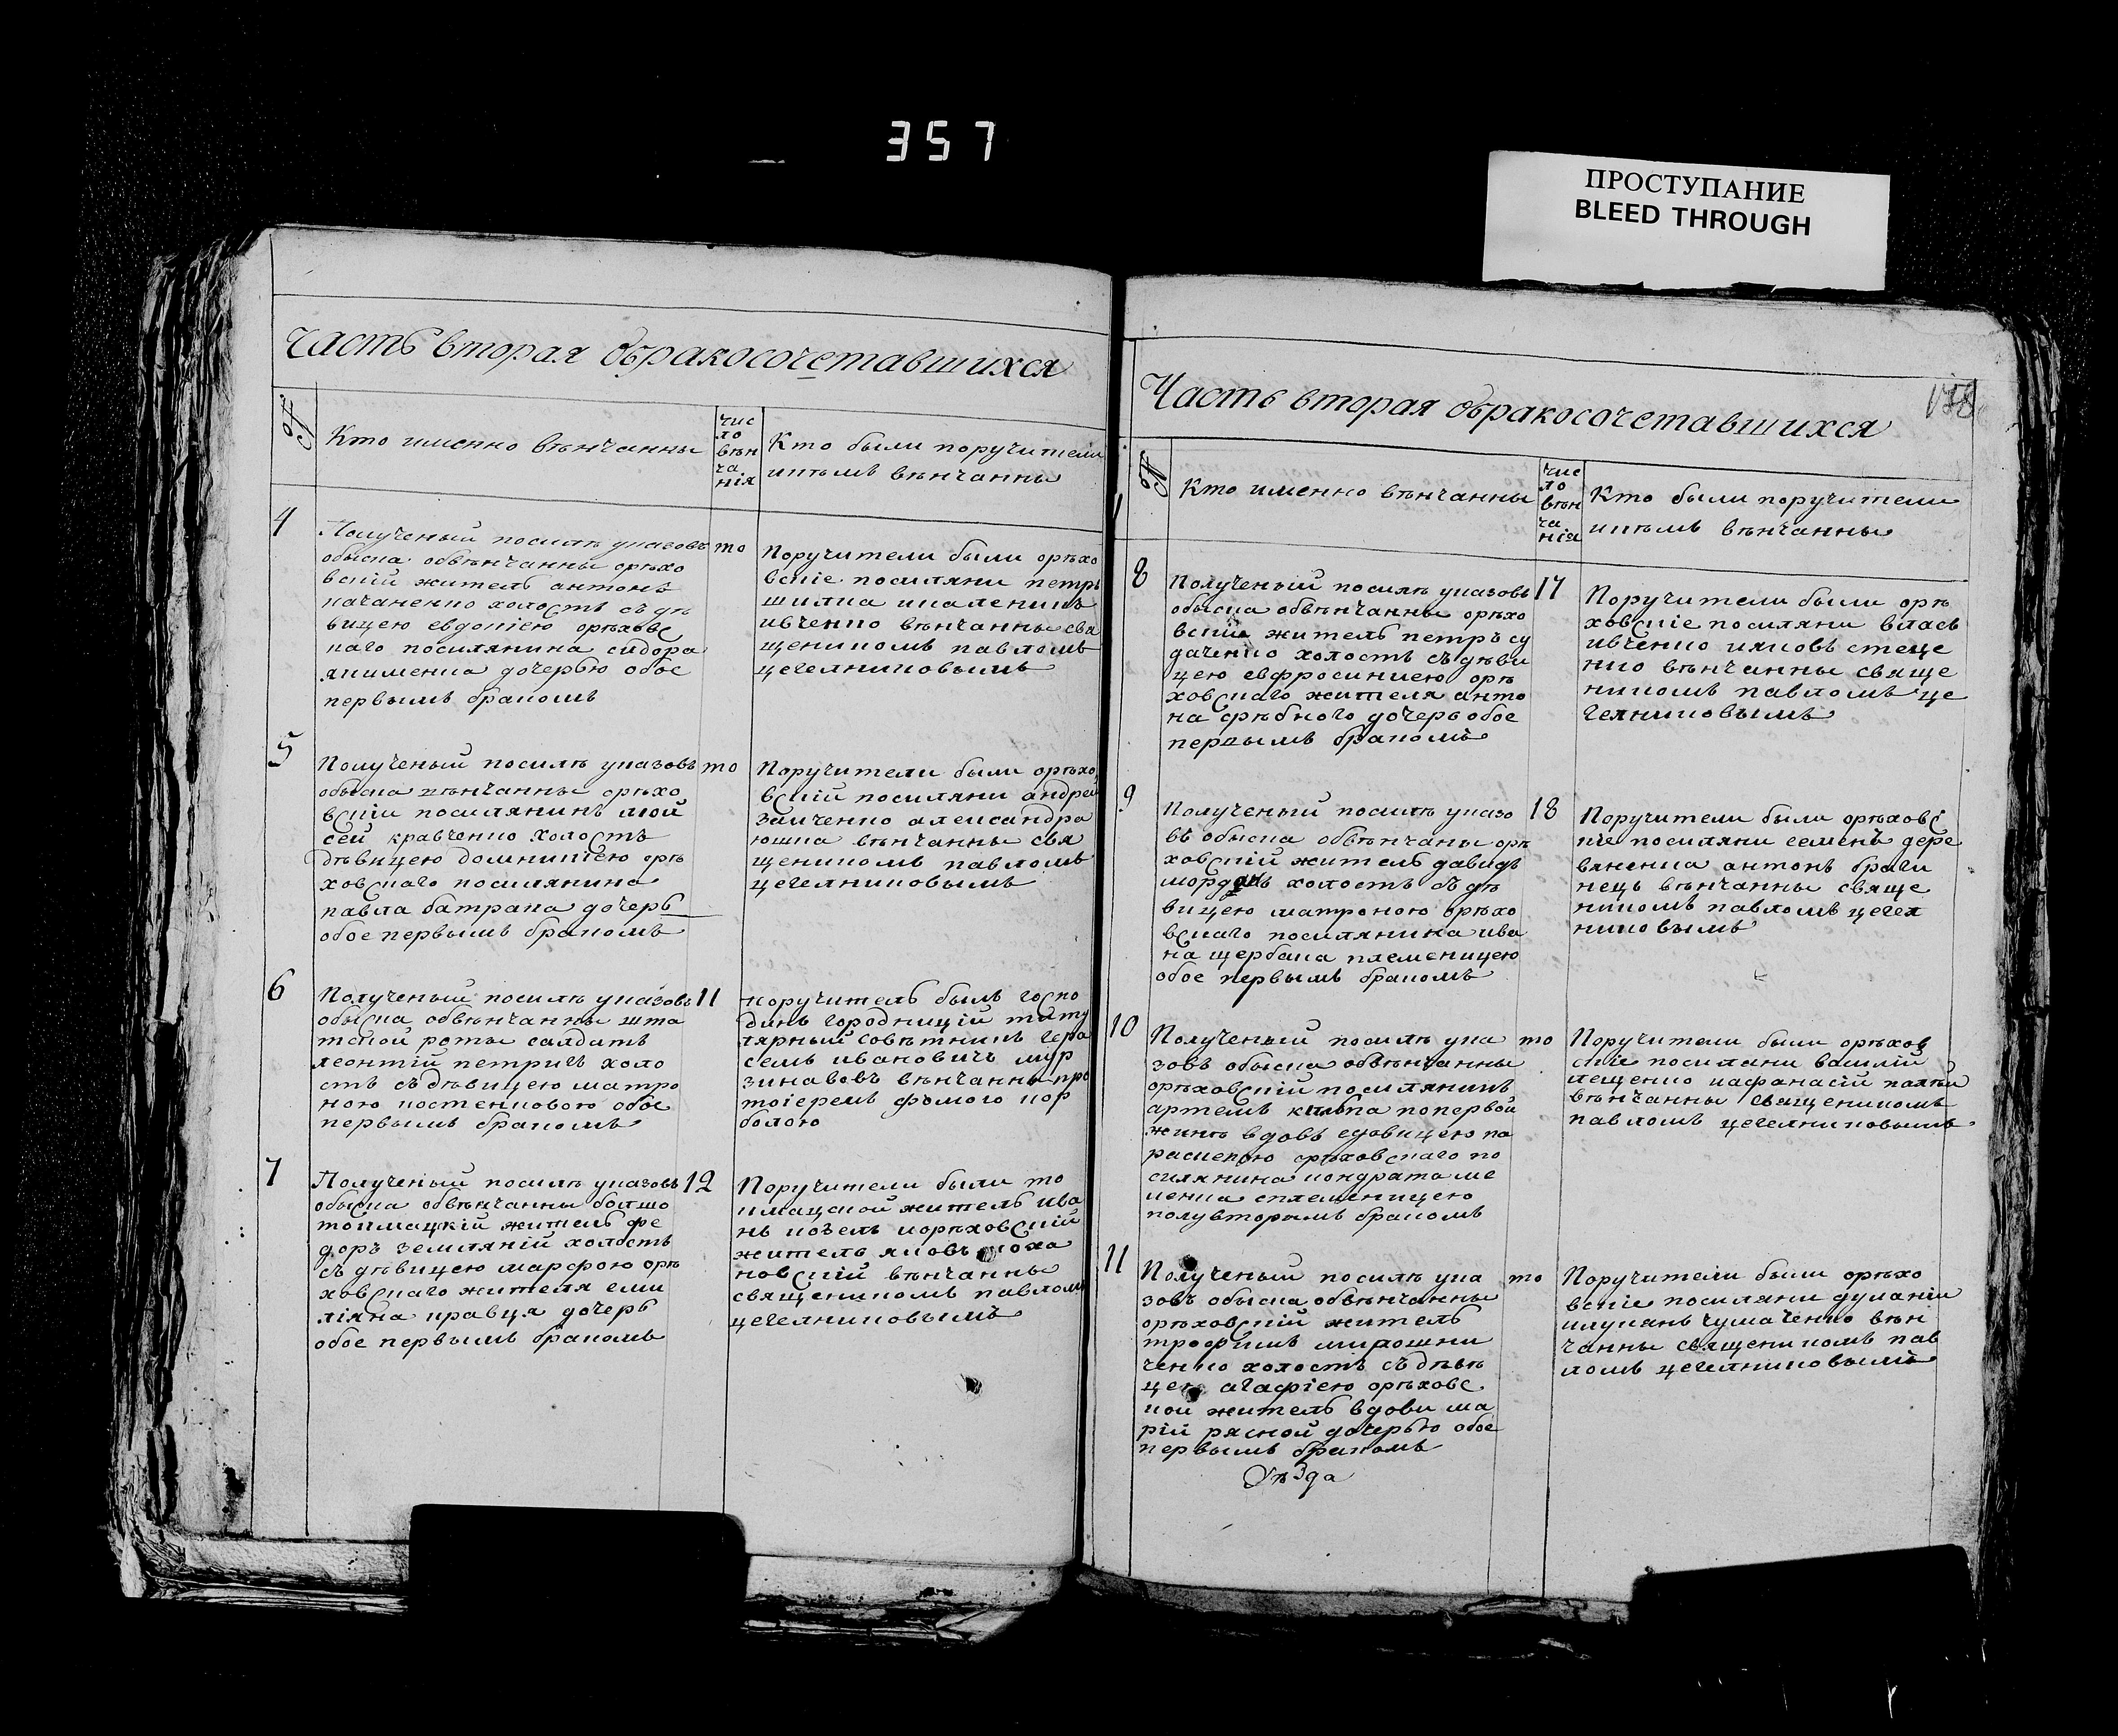 357
ПРОСТУПАНИЕ
BLEED THROUGH
Часть вторая обракосочетавшихся
№
Кто именно вѣнчанны
чис
ло
вѣн
ча
нія
Кто были поручители
икѣмъ вѣнчанны
4
Полученый посилѣ указовъ
обыска обвѣнчанны орѣхо
вскій житель антонъ
качаненко холостъ съдѣ
вицею евдокіею орѣховс
каго посилянина сидора
якименка дочерью обое
первымъ бракомъ
то
Поручители были орѣхо
вскіе посиляни петръ
шилка
ивченко вѣнчанны свя
щеникомъ павломъ
цегелниковымъ
5
Полученый посилѣ указовъ
обыска вѣнчанны орѣхо
вскіи посилянинъ мой
сей кравченко холостъ
дѣвицею домникіею орѣ
ховскаго посилянина
павла батрака дочерь
обое первымъ бракомъ
то
Поручители были орѣхо
вскій посиляни андрей
заиченко александра
юшка вѣнчанны свя
щеникомъ павломъ
цегелниковымъ
6
Полученый посилѣ указовъ
обыска обвѣнчанны шта
тской роты салдатъ
леонтій петричъ холо
стъ съдѣвицею матро
ною костенковою обое
первымъ бракомъ
11
поручитель былъ госпо
динъ городницій титу
лярный совѣтникъ гера
семъ ивановичъ мур
зинавовъ вѣнчанны про
тоіереемъ фомою кор
болою
7
Полученый посилѣ указовъ
обыска обвѣнчанны болшо
токмацкій житель фе
доръ земляній холостъ
съдѣвицею марфою орѣ
ховскаго жителя еми
ліяна кравця дочерь
обое первымъ бракомъ
12
Поручители были то
кмацкой житель ива
нъ козелъ иорѣховскій
житель яковъ
новскій вѣнчанны
священикомъ павломъ
цегелниковымъ
Часть вторая обракосочетавшихся
178
№
Кто именно вѣнчанны
чис
ло
вѣн
ча
нія
Кто были поручители
икѣмъ вѣнчанны
8
Полученый посилѣ указовъ
обыска обвѣнчанны орѣхо
вскіи житель петръ су
даченко холостъ съдѣви
цею евфросиниею орѣ
ховскаго жителя анто
на срѣбного дочерь обое
первымъ бракомъ
17
Поручители были орѣ
ховскіе посиляни власъ
ивченко ияковъ стеце
нко вѣнчанны свяще
никомъ павломъ це
гелниковымъ
9
Полученый посилѣ указо
въ обыска обвѣнчаны орѣ
ховскій житель давидъ
холостъ съдѣ
вицею матроною орѣхо
вскаго посилянина ива
на щербака племеницею
обое первымъ бракомъ
18
Поручители были орѣховс
кіе посиляни семенъ дере
вяненка антонъ браги
нецъ вѣнчанны свяще
никомъ павломъ цегел
никовымъ
10
Полученый посилѣ ука
зовъ обыска обвѣнчанны
орѣховскій посилянинъ
артемъ попервой
женѣ вдовъ сдовицею па
раскевою орѣховскаго по
силянина кондрата ме
ленка сплеменицею
полувторымъ бракомъ
то
Поручители были орѣхов
скіе посиляни василій
лещенко иафанасій
вѣнчанны священикомъ
павломъ цегелниковымъ
11
Полученый посилѣ ука
зовъ обыска обвѣнчанны
орѣховскій житель
трофимъ мирошни
ченко холостъ съдѣви
цею агафіею орѣховс
кой житель вдови ма
рій рясной дочерью обое
первымъ бракомъ
то
Поручители были орѣхо
вскіе посиляни
чумаченко вѣн
чанны священикомъ пав
ломъ цегелниковымъ
уѣзда